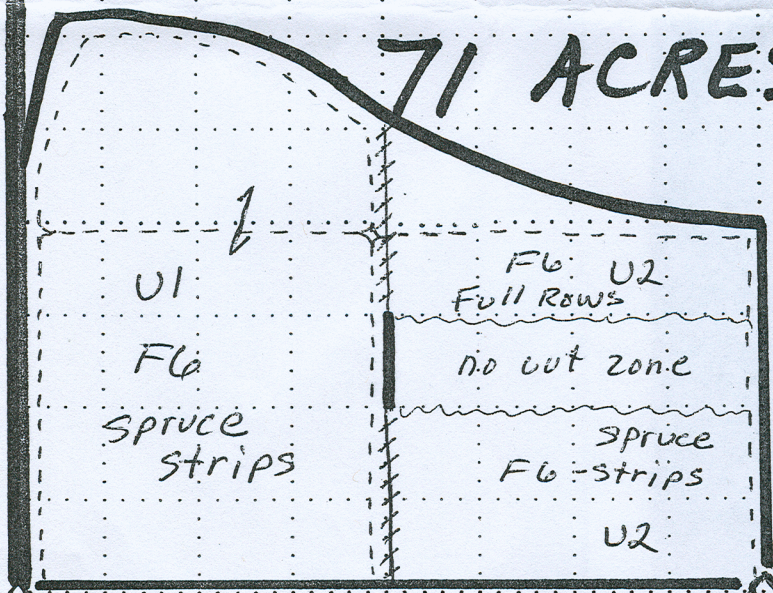 71 ACRES
U1
F6
Spruce
strips
F6 U2
Full Rows
no cut zone
Spruce
F6 - strips
U2